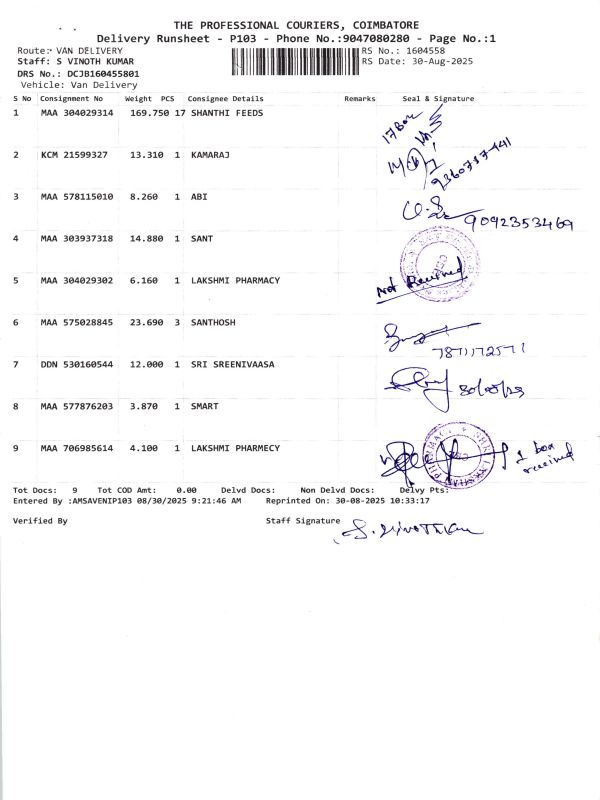 THE PROFESSIONAL COURIERS, COIMBATORE
Delivery Runsheet - P103 - Phone No.:9047080280 - Page No.:1
Route: VAN DELIVERY RS No.: 1604558
Staff: S VINOTH KUMAR RS Date: 30-Aug-2025
DRS No.: DCJB160455801
Vehicle: Van Delivery
S No Consignment No Weight PCS Consignee Details Remarks Seal & Signature
1 MAA 304029314 169.750 17 SHANTHI FEEDS 17 Box
2 KCM 21599327 13.310 1 KAMARAJ
3 MAA 578115010 8.260 1 ABI 9092353469
4 MAA 303937318 14.880 1 SANT
5 MAA 304029302 6.160 1 LAKSHMI PHARMACY Not Received
6 MAA 575028845 23.690 3 SANTHOSH
7 DDN 530160544 12.000 1 SRI SREENIVAASA
8 MAA 577876203 3.870 1 SMART
9 MAA 706985614 4.100 1 LAKSHMI PHARMECY 1 box received
Tot Docs: 9 Tot COD Amt: 0.00 Delvd Docs: Non Delvd Docs: Delvy Pts:
Entered By :AMSAVENIP103 08/30/2025 9:21:46 AM Reprinted On: 30-08-2025 10:33:17
Verified By Staff Signature S. Vinoth Kumar